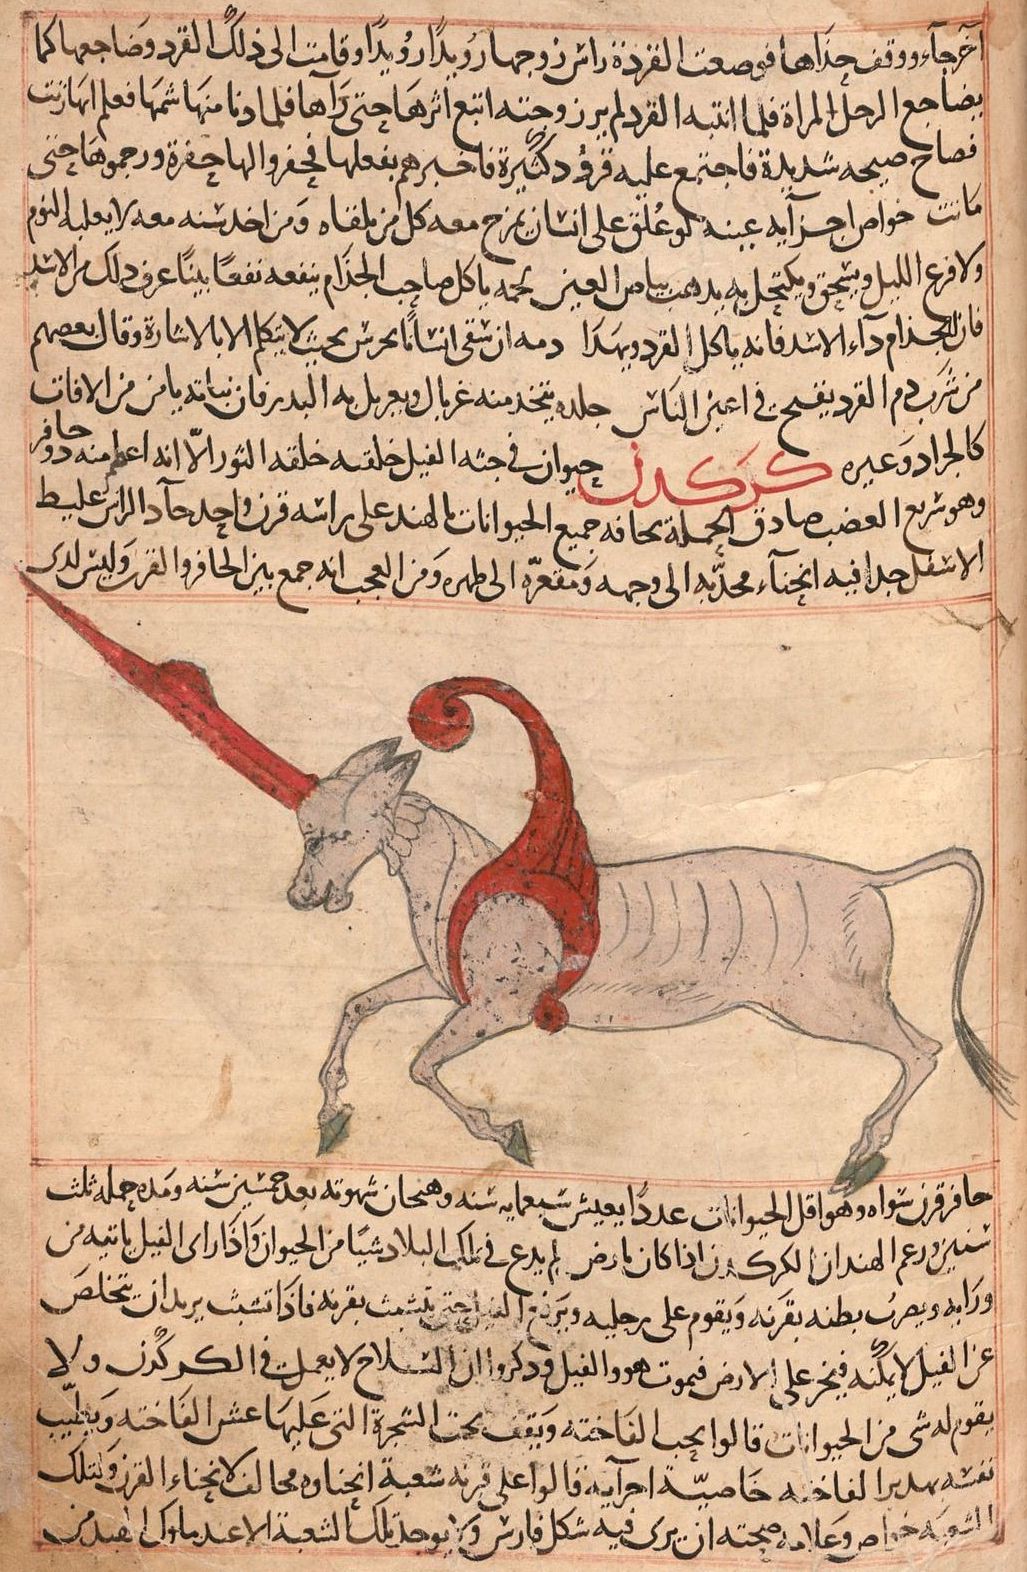 آخر جآء ووقف حذاها فوضعت القردة راس زوجها رويدًا رويدًا وقامت الى ذلك القرد وضاجعها كما
يضاجع الرجل المراة فلما انتبه القرد لم ير زوجته اتبع اثرها حتى رآها فلما دنا منها شمها فعلم انها زنت
فصاح صيحه شديدة فاجتمع عليه قرود كثيرة فاخبرهم بفعلها فحفروا لها حفرة ورجموها حتى
ماتت خواص اجزآيه عينه لو علق على انسان يمزح معه كل من يلقاه ومن اخد سنه معه لا يغلبه النوم
ولا فزع الليل ويسحق ويكتحل به يدهب بياض العين لحمه ياكل صاحب الجذام ينفعه نفعًا بينًا عرف دلك من الاسد
فان الجذام دآء الاسد فانه ياكل القرد وبهذا دمه ان سقى انسانًا يخرس بحيث لا يتكلم الا بالاشارة وقال بعضهم
من شرب دم القرد يقبح في اعين الناس جلده يتخد منه غربال ويغربل به البدر فان نباته يامن من الافات
كالجراد وغيره كركدن حيوان في جثه الفيل خلقته خلقه الثور الّا انه اعظم منه دو حافر
وهو سريع الغضب صادق الحملة تخافه جميع الحيوانات بالهند على راسه قرن واحد حآد الراس غليظ
الاسفل جدا فيه انحنآء محدّبه الى وجهه ومقعرّه الى ظهره ومن العجب انه جمع بين الحافر والقرن وليس لدى
حافر قرن سواه وهو اقل الحيوانات عددًا يعيش سبعمايه سنه وهيجان شهوته بعد خمسين سنه ومده حمله ثلث
سنين وزعم الهند ان الكركدن اذا كان بارض لم يدع في تلك البلاد شيًا من الحيوان واذا راى الفيل ياتيه من
ورايه ويضرب بطنه بقرنه ويقوم على رجليه ويرفع الفيل حتى يتشبث بقرنه فاذا تشبث يريد ان يتخلص
عن الفيل لا يمكنه فيخر على الارض فيموت هو والفيل ودكروا ان السلاح لا يعمل في الكركدن ولا
يقوم له شى من الحيوانات قالوا يحب الفاخته ويقف تحت الشجرة التى عليها عش الفاخته ويطيب
نفسه بهدير الفاخته خاصيّة اجزآيه قالوا على قرنه شعبة انحناوه مخالف لانحناء القرن ولتلك
الشعبه خواص وعلامه صحته ان يرى فيه شكل فارس ولا يوجد تلك الشعبة الا عند ملوك الهند من